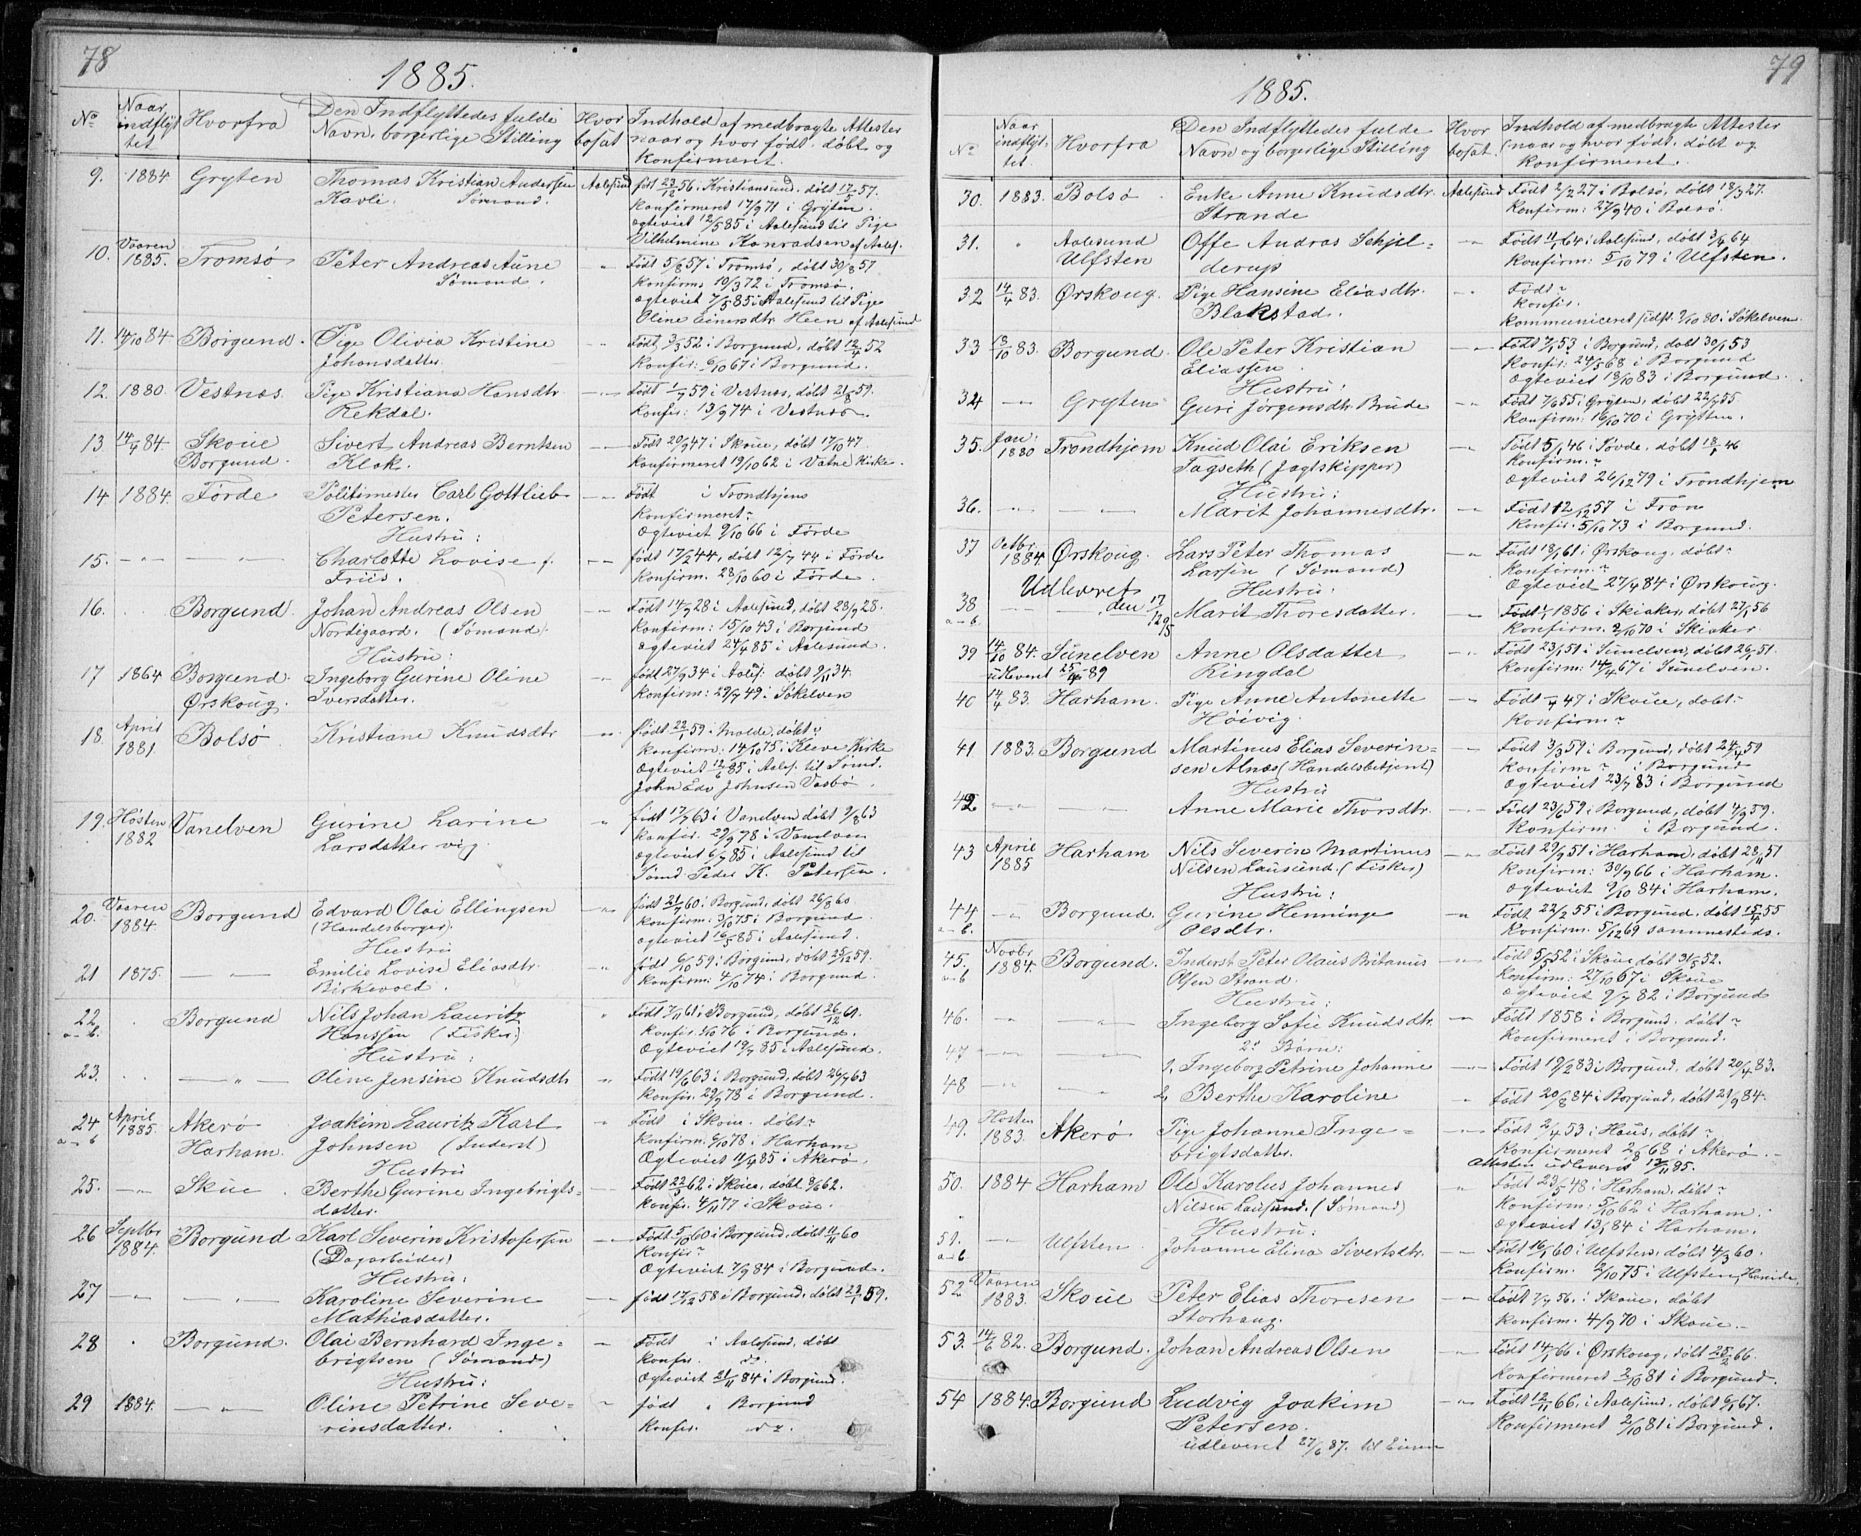 78
1885.
No
Naar indflyttet
Hvorfra
Den Indflyttedes fulde Navn, borgerlige Stilling
Hvor bosat
Indhold af medbragte Attester naar og hvor født, døbt og konfirmeret.
9. 1884 Gryten Thomas Kristian Andersen Aalesund født 23/12 56 i Kristiansund, døbt 17/5 57.
Havle. Sømand. Konfirmeret 17/9 71 i Gryten.
Ægteviet 12/5 85 i Aalesund til Pige
Vilhelmine Konradsen af Aales.
10. Vaaren 1885. Tromsø Peter Andreas Aune Født 5/8 57 i Tromsø, døbt 30/8 57
Sømand. Konfirm. 19/3 72 i Tromsø.
Ægteviet 7/5 85 i Aalesund til Pige
Oline Einersdtr. Heen af Aalesund
11. 14/10 84 Borgund. Pige Olivia Kristine Født 3/3 52 i Borgund, døbt 12/4 52
Johansdatter. Konfir: 6/10 67 i Borgund.
12. 1880. Vestnæs. Pige Kristiana Hansdtr Født 1/7 59 i Vestnæs, døbt 21/8 59.
Rekdal. Konfir: 13/9 74 i Vestnæs.
13 14/4 84. Skoue Sivert Andreas Berntsen Født 20/9 47 i Skoue, døbt 17/10 47
Borgund. Klok. Konfirmeret 19/10 62 i Vatne Kirke.
14. 1884. Førde Politimester Carl Gottlieb Født i Trondhjem
Petersen. Konfirmeret?
Hustru: Ægteviet 9/10 66 i Førde
15. Charlotte Lovise f. født 17/2 44, døbt 12/7 44 i Førde
Friis. Konfirm. 28/10 60 i Førde.
16. Borgund. Johan Andreas Olsen Født 14/9 28 i Aalesund, døbt 28/9 28.
Nordigaard. (Sømand). Konfirm: 15/10 43 i Borgund
Hustru: Ægteviet 24/4 85 i Aalesund.
17 1864 Borgund Ingeborg Gurine Oline født 27/9 34 i Aales. døbt 9/11 34.
Ørskoug. Iversdatter. Konfirm: 29/7 49 i Søkelven
18. April 1881 Bolsø Kristiane Knudsdtr født 22/1 59 i Molde, døbt?
Konfirm: 14/10 75 i Kleve Kirke
Ægteviet 12/6 85 i Aales. til Sømd.
John Edv. Johnsen Vasbø.
19. Høsten 1882 Vanelven Gurine Larine født 17/7 63 i Vanelven døbt 9/8 63
Larsdatter vig. Konfir. 29/9 78 i Vanelven
Ægteviet 6/7 85 i Aalesund til
Sømd Peder K. Petersen.
20. Vaaren 1884. Borgund Edvard Olai Ellingsen født 21/7 60 i Borgund, døbt 26/8 60
(Handelsborger). Konfirm: 3/10 75 i Borgund
Hustru Ægteviet 16/5 85 i Aalesund.
21 1875. Emilie Lovise Eliasdtr. født 6/10 59 i Borgund, døbt 25/12 59.
Birkevold. Konfirm: 4/10 74 i Borgund.
22 a-b. Borgund Nils Johan Lauritz Født 7/11 61 i Borgund, døbt 26/12 61.
Hanssen (Fisker) Konfir. 1/10 76 i Borgund.
Hustru: Ægteviet 19/7 85 i Aalesund.
23. Oline Jensine Knudsdtr Født 19/6 63 i Borgund, døbt 26/7 63
Konfir. 29/9 78 i Borgund.
24 a-b April 1885. Akerø Joakim Lauritz Karl Født i Skoue. døbt?
Harham. Johnsen (Inderst) Konfirm: 6/10 78 i Harham
Hustru Ægteviet 11/4 85 i Akerø.
25. Skoue. Berthe Gurine Ingebrigts- Født 22/5 62 i Skoue. døbt 8/6 62.
datter. Konfir. 4/11 77 i Skoue.
26 Septbr 1884. Borgund Karl Severin Kristofersen Født 5/10 60 i Borgund, døbt 11/11 60
(Dagarbeider) Konfir?
Hustru: Ægteviet 7/9 84 i Borgund.
27 Karoline Severine født 17/12 58 i Borgund, døbt 23/1 59.
Mathiasdatter.
28 Borgund. Olai Bernhard Inge- Født i Aalesund, døbt
brigtsen (Sømand) Konfir. do.
Hustru: Ægteviet 21/11 84 i Borgund.
29 1884. Oline Petrine Seve- født i Borgund
rinsdatter. Konfir. do.
79
1885.
No
Naar indflyttet.
Hvorfra
Den Indflyttedes fulde Navn og borgerlige Stilling
Hvor bosat.
Indhold af medbragte Attester (naar og hvor født, døbt og konfirmeret.
30. 1883. Bolsø Enke Anne Knudsdtr. Aalesund Født 2/2 27 i Bolsø, døbt 18/3 27.
Strande Konfirm: 27/9 40 i Bolsø.
31. Aalesund Offe Andras Schjel- Født 11/1 64 i Aalesund, døbt 3/4 64
Ulfsten derup Konfirm: 5/10 79 i Ulfsten.
32 14/4 83. Ørskoug. Pige Hansine Eliasdtr. Født?
Blakstad. Konfir.
Kommuniceret sidst 3/10 80 i Søkelven.
33 13/10 83. Borgund. Ole Peter Kristian Født 7/1 53 i Borgund, døbt 30/1 53
Eliassen. Konfir: 24/5 68 i Borgund
Hustru: Ægteviet 18/10 83 i Borgund.
34 Gryten Guri Jørgensdtr. Brude Født 7/6 55 i Gryten, døbt 22/7 55
Konfirm: 16/10 70 i Grytten.
35. Jan: 1880 Trondhjem Knud Olai Eriksen Født 5/1 46 i Søvde, døbt 18/1 46
Tagseth (Jagtskipper) Konfirm.?
Hustru: Ægteviet 26/12 79 i Trondhjem
36. Marit Johannesdtr. Født 12/12 57 i Fron
Konfir. 5/10 73 i Borgund.
37 Octbr 1884 Ørskoug. Lars Peter Thomas Født 18/1 61 i Ørskoug, døbt?
Larsen (Sømand) Konfirm.?
Hustru: Ægteviet 27/7 84 i Ørskoug.
38 a-b. Udleveret den 17/12 95 Marit Thoresdatter. Født 1/1 1856 i Skiaker, døbt 27/1 56
Konfirm. 2/10 70 i Skiaker
39 14/10 84. Sunelven Anne Olsdatter Født 23/1 51 i Sunelven, døbt 26/1 51.
udleveret 25/4 89 Ringdal Konfirm: 14/4 67 i Sunelven.
40 14/4 83. Harham. Pige Anne Antonette Født 7/4 47 i Skoue, døbt:
Høivig. Konfirm?
41. 1883. Borgund Martinus Elias Severin- Født 3/3 59 i Borgund, døbt 24/4 59
sen Alnæs (Handelsbetjent) Konfirm? i Borgund
Hustru Ægteviet 23/7 83 i Borgund
42. Anne Marie Thorsdtr. Født 23/6 59 i Borgund, døbt 4/9 59.
Konfirm. i Borgund.
43 April 1885 Harham Nils Severin Martinus Født 29/9 51 i Harham, døbt 28/11 51
Nilsen Lausund. (Fisker) Konfirm: 30/9 66 i Harham.
Hustru: Ægteviet 9/10 84 i Harham.
44 a-b. Borgund. Gurine Henninge Født 22/2 55 i Borgund, døbt 15/4 55
Olsdtr. Konfirm. 5/12 69 sammesteds.
45. a-b Novbr 1884. Borgund. Inderst Peter Olaus Britanus Født 5/5 52 i Skoue døbt 31/5 52.
Olsen Strand. Konfirm: 27/10 67 i Skoue
Hustru: Ægteviet 9/7 82 i Borgund
46. Ingeborg Sofie Knudsdtr. Født 1858 i Borgund. døbt?
2 Børn: Konfirmeret i Borgund.
47 1. Ingeborg Petrine Johanne Født 19/2 83 i Borgund, døbt 20/4 83.
48 2, Berthe Karoline Født 20/8 84 i Borgund, døbt 21/9 84.
49. Høsten 1883. Akerø Pige Johanne Inge- Født 2/4 53 i Haus, døbt?
brigtsdatter. Konfirmeret 2/8 68 i Akerø.
Attesten udleveret 13/11 85.
50. 1884 Harham Ole Karolus Johannes Født 23/5 48 i Harham, døbt?
Nilsen Lausund. (Sømand) Konfirm: 5/10 62 i Harham.
Hustru: Ægteviet 13/1 84 i Harham.
51. a-b Ulfsten. Johanne Elina Sivertsdtr. Født 16/1 60 i Ulfsten, døbt 4/3 60.
Konfirm. 2/10 75 i Ulfsten, Hareide.
52 Vaaren 1883. Skoue Peter Elias Thoresen Født 7/7 56. i Skoue, døbt
Storhaug. Konfirm. 4/9 70 i Skoue.
53. 14/6 82. Borgund. Johan Andreas Olsen Født 14/1 66 i Ørskoug, døbt 25/2 66.
Konfirmeret 2/10 81 i Borgund.
54 1884. Borgund Ludvig Joakim Født 12/11 66, i Aalesund, døbt 6/1 67.
Petersen. Konfirmeret 2/10 81 i Borgund.
udleveret 27/6 87. til Eieren